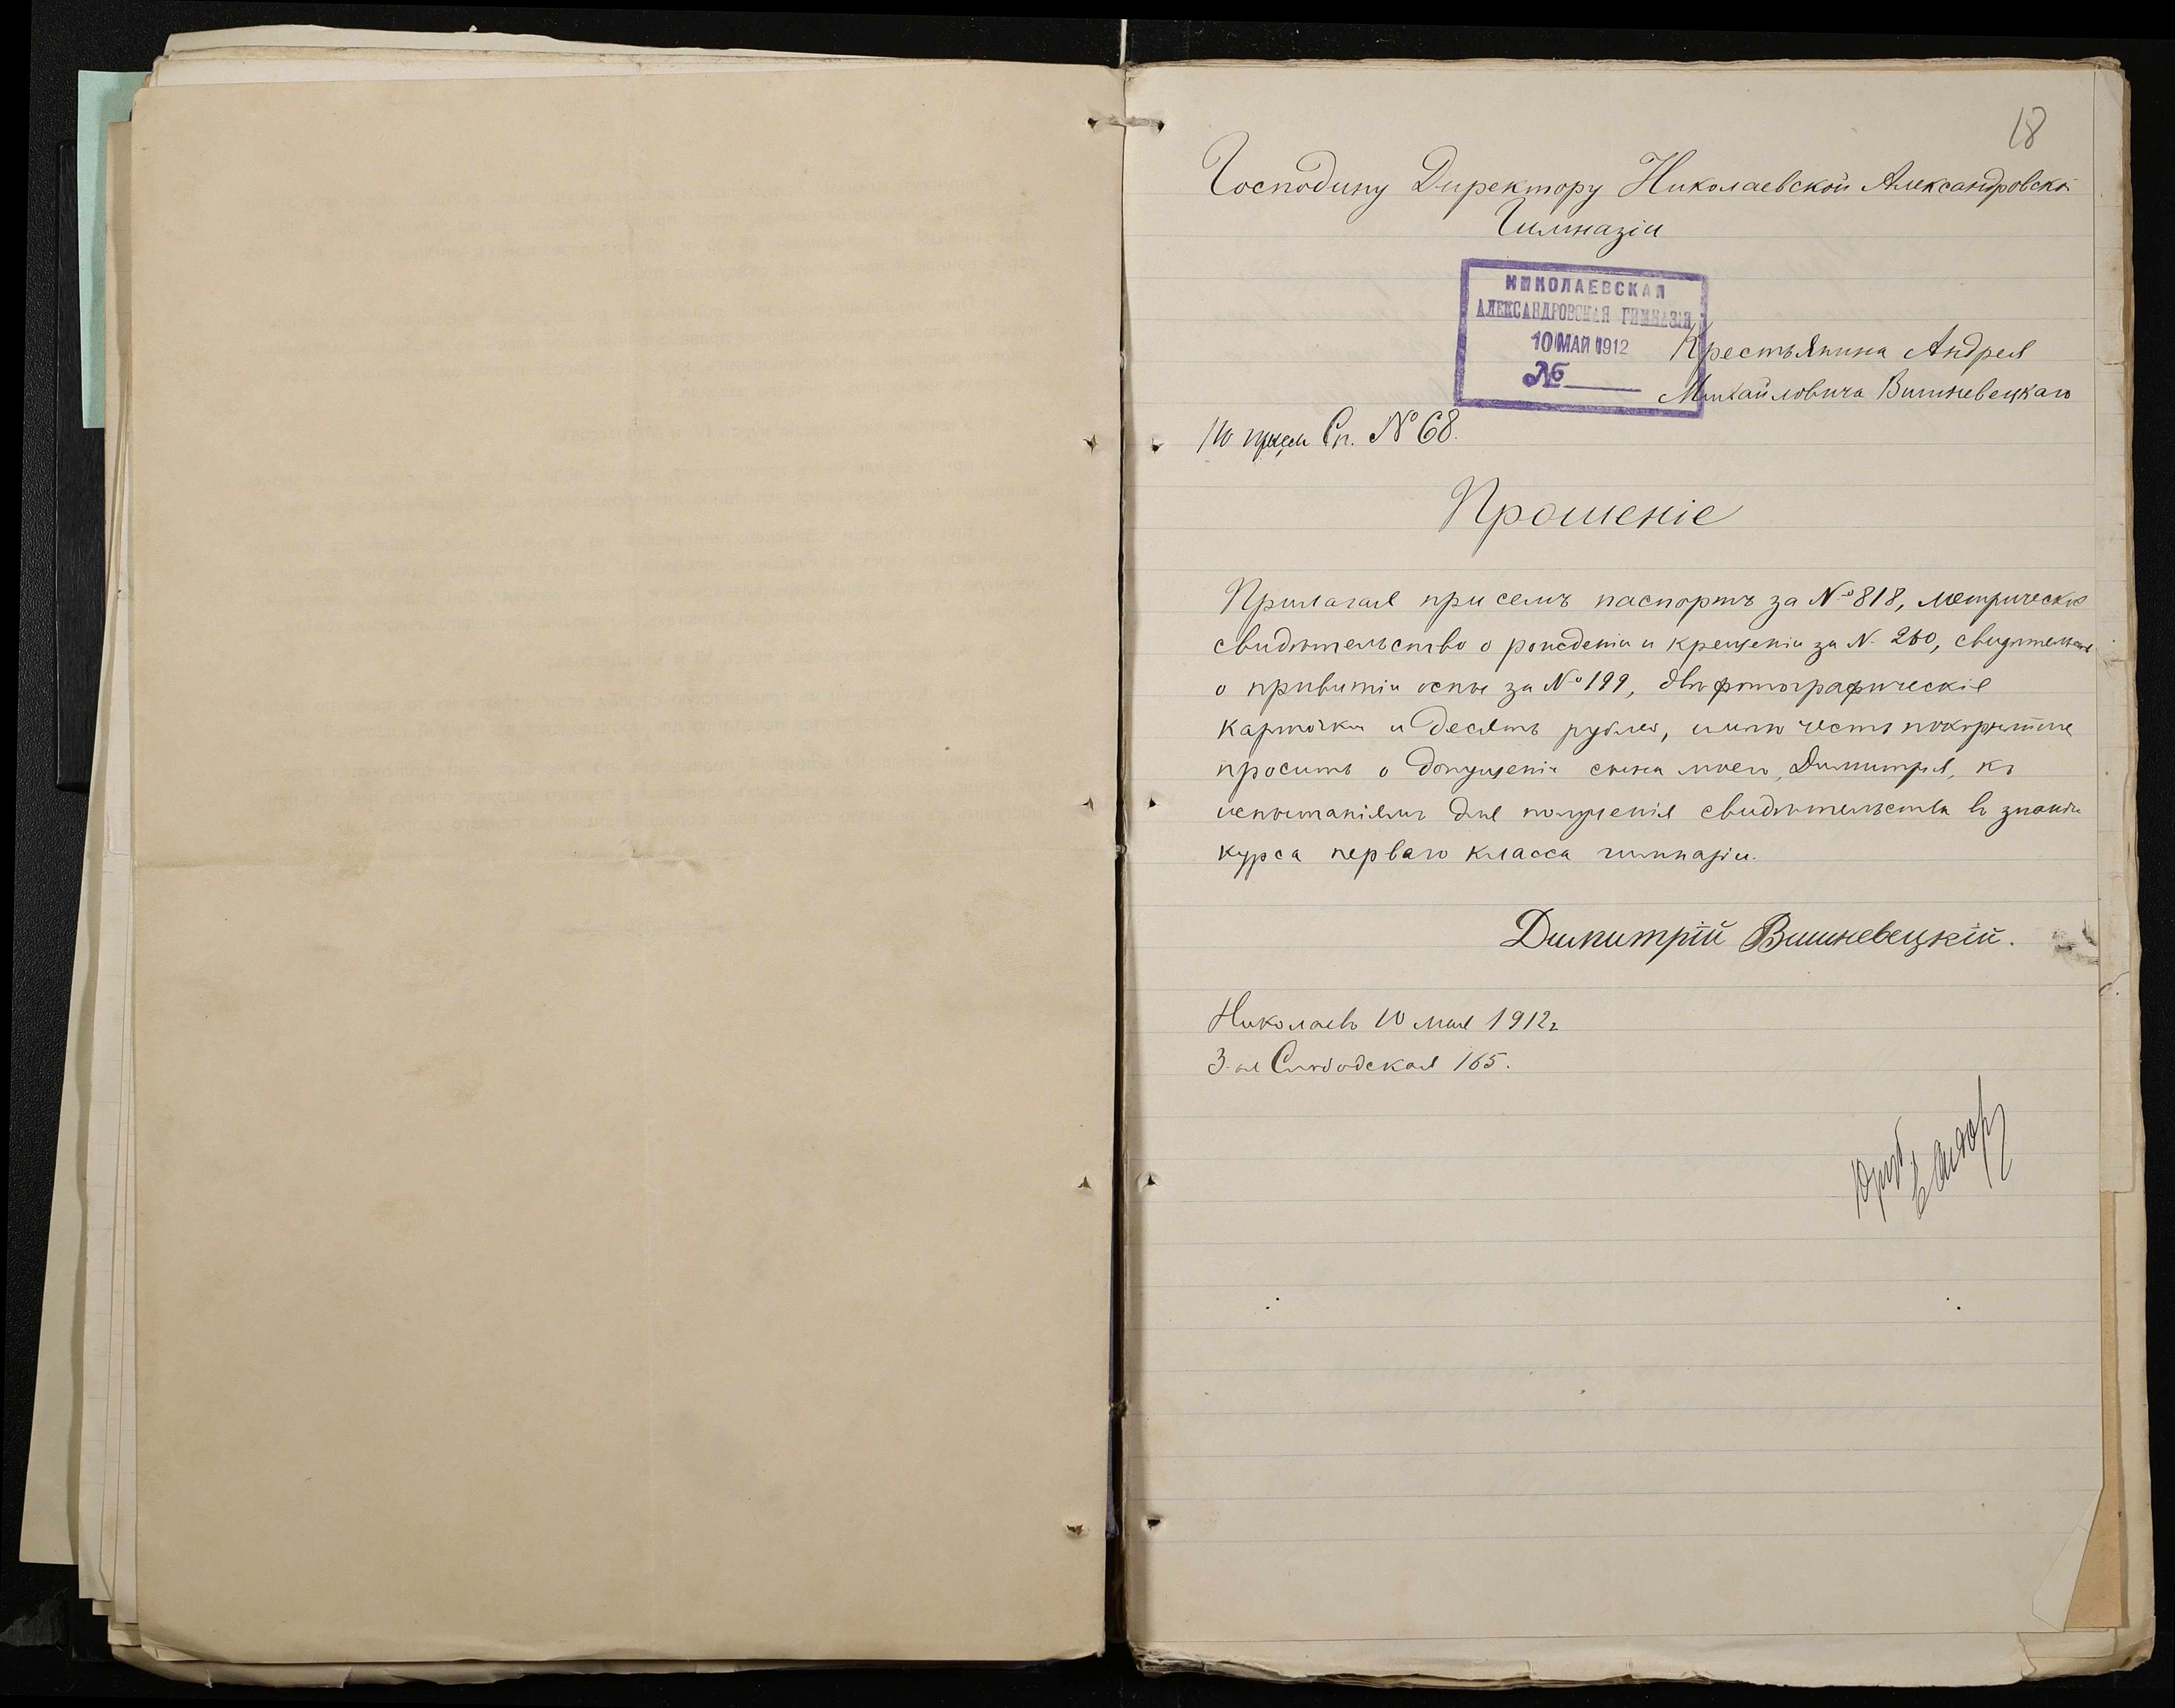 18
Господину Директору Николаевской Александровской
Гимназіи
НИКОЛАЕВСКАЯ
АЛЕКСАНДРОВСКАЯ ГИМНАЗІЯ
10 МАЙ 1912
№
Крестьянина Андрея
Михайловича Вишневецкаго
Сп. № 68.
Прошеніе
Прилагая при семъ паспортъ за № 818, метрическое
свидѣтельство о рожденіи и крещеніи за № 260, свидѣтельство
о привитіи оспы за № 199, двѣ фотографическія
карточки и десять рублей, имѣю честь покорнѣйше
просить о допущеніи сына моего, Димитрія, къ
испытаніямъ для полученія свидѣтельства въ знаніи
курса перваго класса гимназіи.
Димитрій Вишневецкій.
Николаевъ 10 мая 1912 г
3-ая Слободская 165.